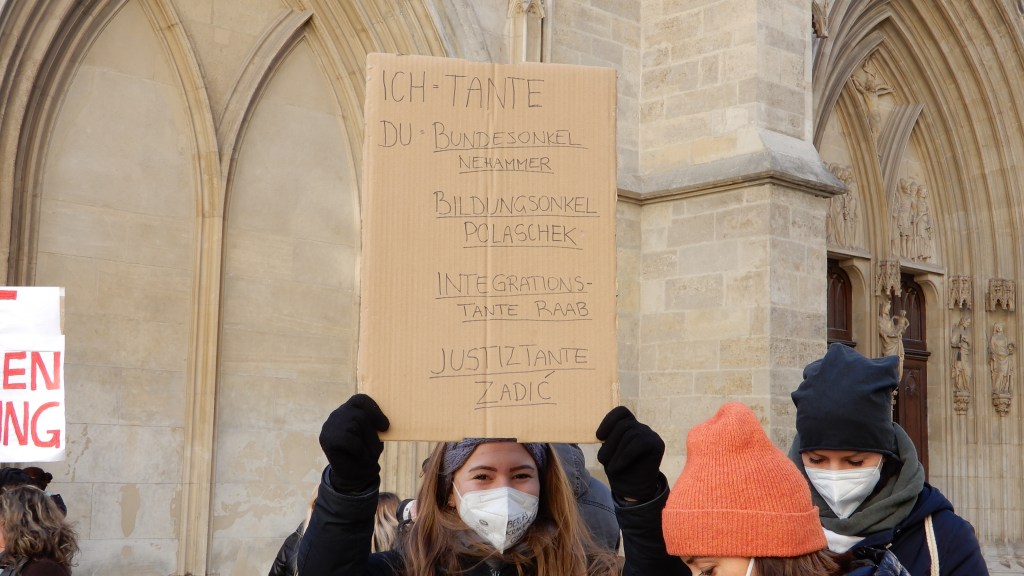 ICH = TANTE
DU = BUNDESONKEL
NEHAMMER
BILDUNGSONKEL
POLASCHEK
INTEGRATIONS-
TANTE RAAB
JUSTIZTANTE
ZADIĆ
EN
NG